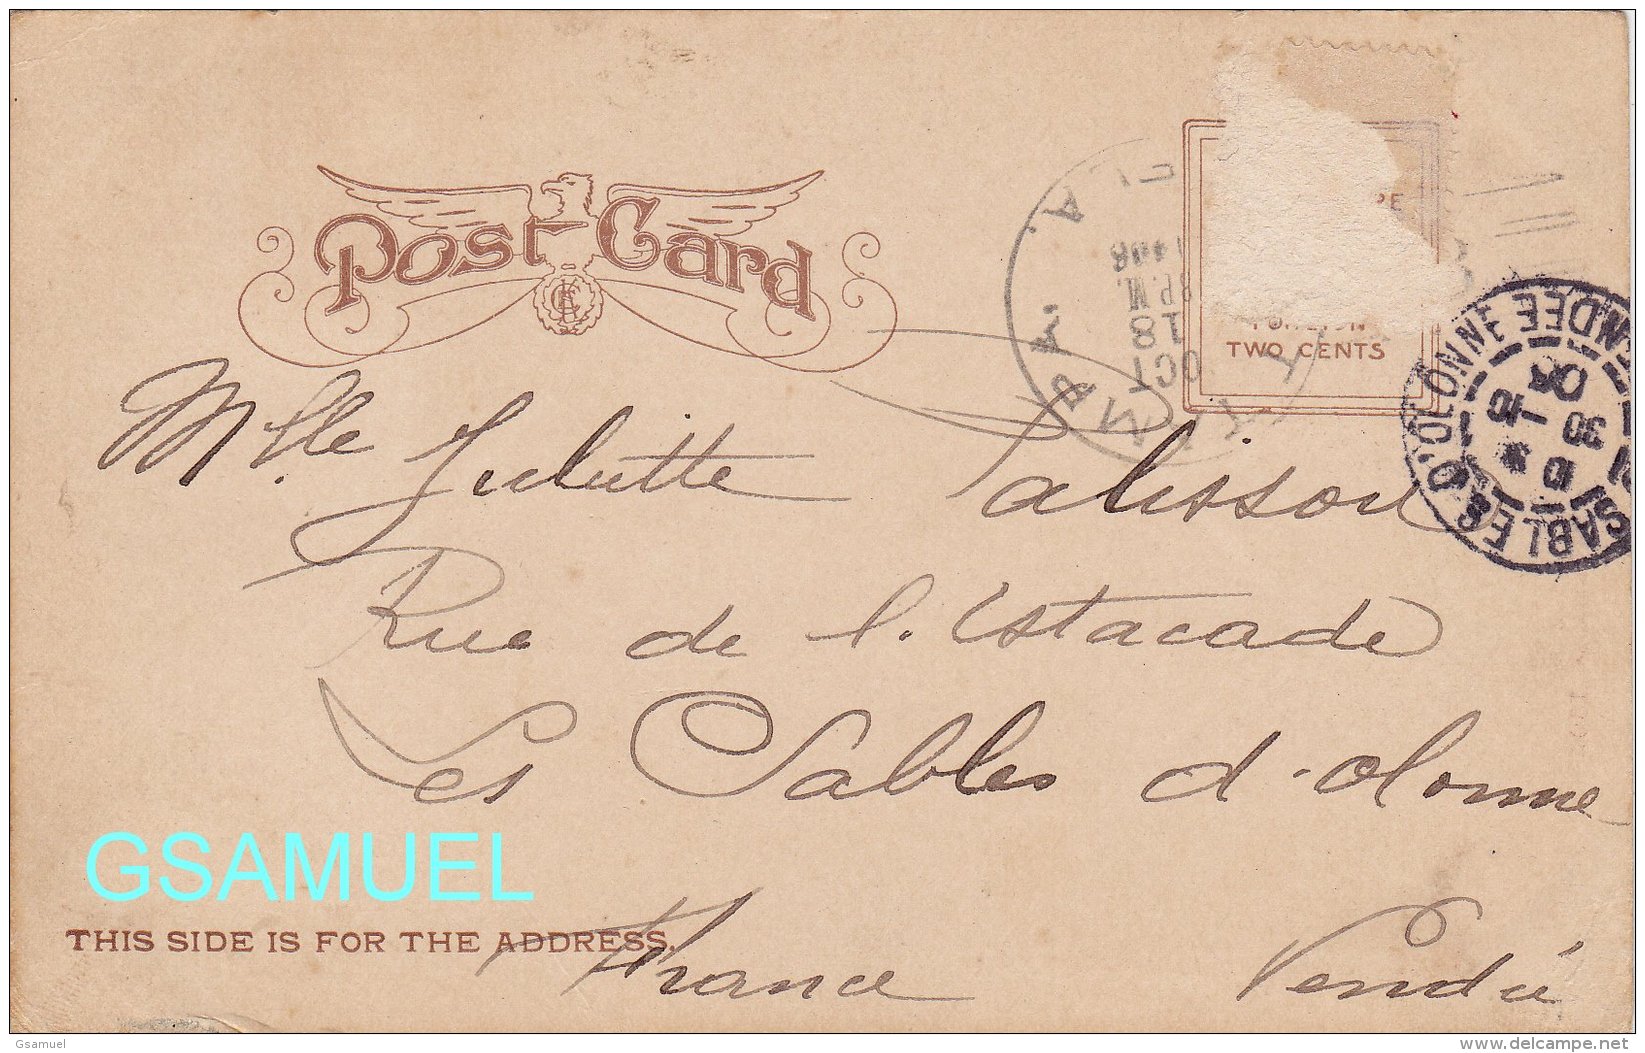 Post Card
TWO CENTS
OCT
18
8 P.M.
1908
SABLES D'OLONNE VENDEE
30
10
08
Mlle Juliette Palisson
Rue de l'Estacade
Les Sables d'olonne
GSAMUEL
THIS SIDE IS FOR THE ADDRESS.
France Vendée
Gsamuel
delcampe.net